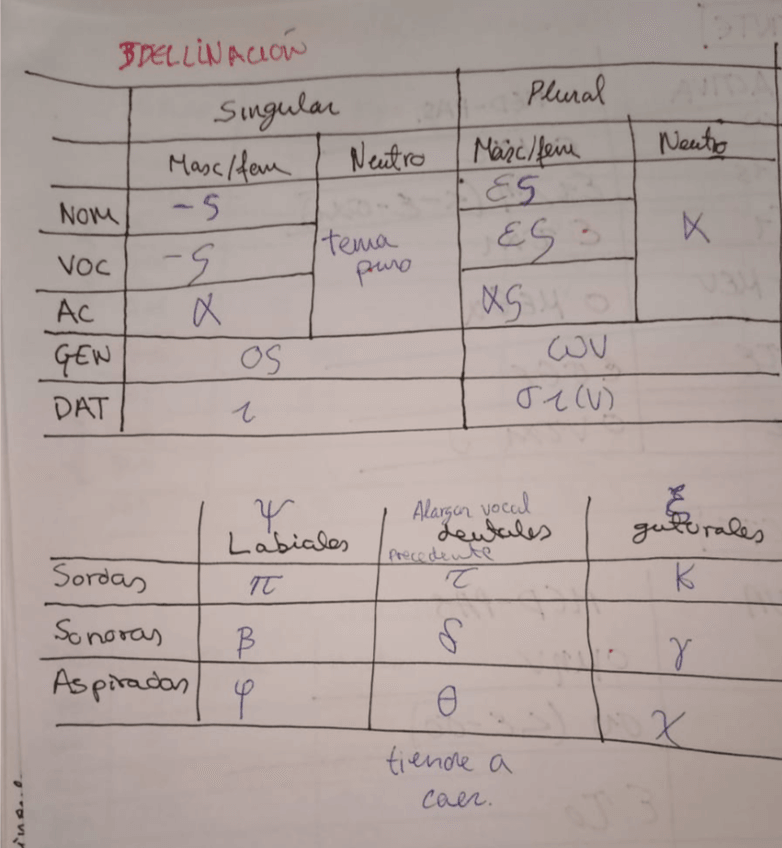 3 DECLINACIÓN
Singular Plural
Masc/fem Neutro Masc/fem Neutro
NOM -ς ες
VOC -ς tema puro ες α
AC α ας
GEN ος ων
DAT ι σι(ν)
ψ Alargar vocal ξ
Labiales dentales guturales
precedente
Sordas π τ κ
Sonoras β δ γ
Aspiradas φ θ χ
tiende a
caer.